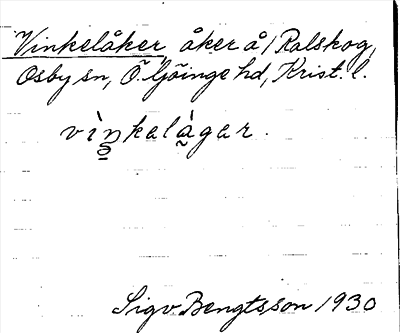 Vinkelåker åker å/ Ralskog,
Osby sn, Ö. Göinge hd, Krist. l.
vìn̥kelàgar.
Sigv Bengtsson 1930